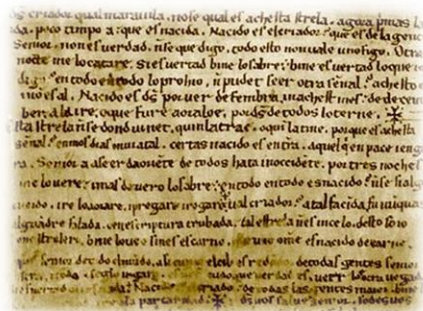 criador qual marauila, nose qual es achesta strela. agora primas la
da. poco timpo a que es nacida. Nacido es el criador que es de la gen
Senior. non es uerdad. ñ se que digo. todo esto non uale uno figo. Otra
nocte me lo catare. Si es uertad bine lo sabre. bine es uertad lo que io
digo en todo en todo lo prohio. ñ pudet seer otra señal. achesto e
i no es al. Nacido es ds por uer de fembra. in achest mes de decem
ber. ala ire. o que fure aoralo e. por ds de todos lo terne.
sta strela ñ se dond uinet. quin la trae o quin la tine. porque es achesta
señal. en mos dias atal. certas nacido es en tirra. aquel en pace i en g
ra. Senior a a seer da oriente de todos hata in occidente. por tres noches
me lo uere. i mas de uero lo sabre. en todo en todo es nacido. ñ se si alg
ueido. ire lo aorare. i pregare i rogare. ual criador atal facida fu nuqua
alguandre falada. o en escriptura trubada. tal estrela ñ es in celo. desto so io
ono strelero. bine lo ueo sines escarno. uno ome es nacido de carne.
senior de todo el mundo. asi cumo el cilo es redondo. de todas gentes senior
sera. i todo seglo iugara. que uerdad es. ueer lo e otra uegada
si es uertad o Nacido criador. de todas las gentes maior. bine
ala par caridad. ds uos salue senior. sodes uos